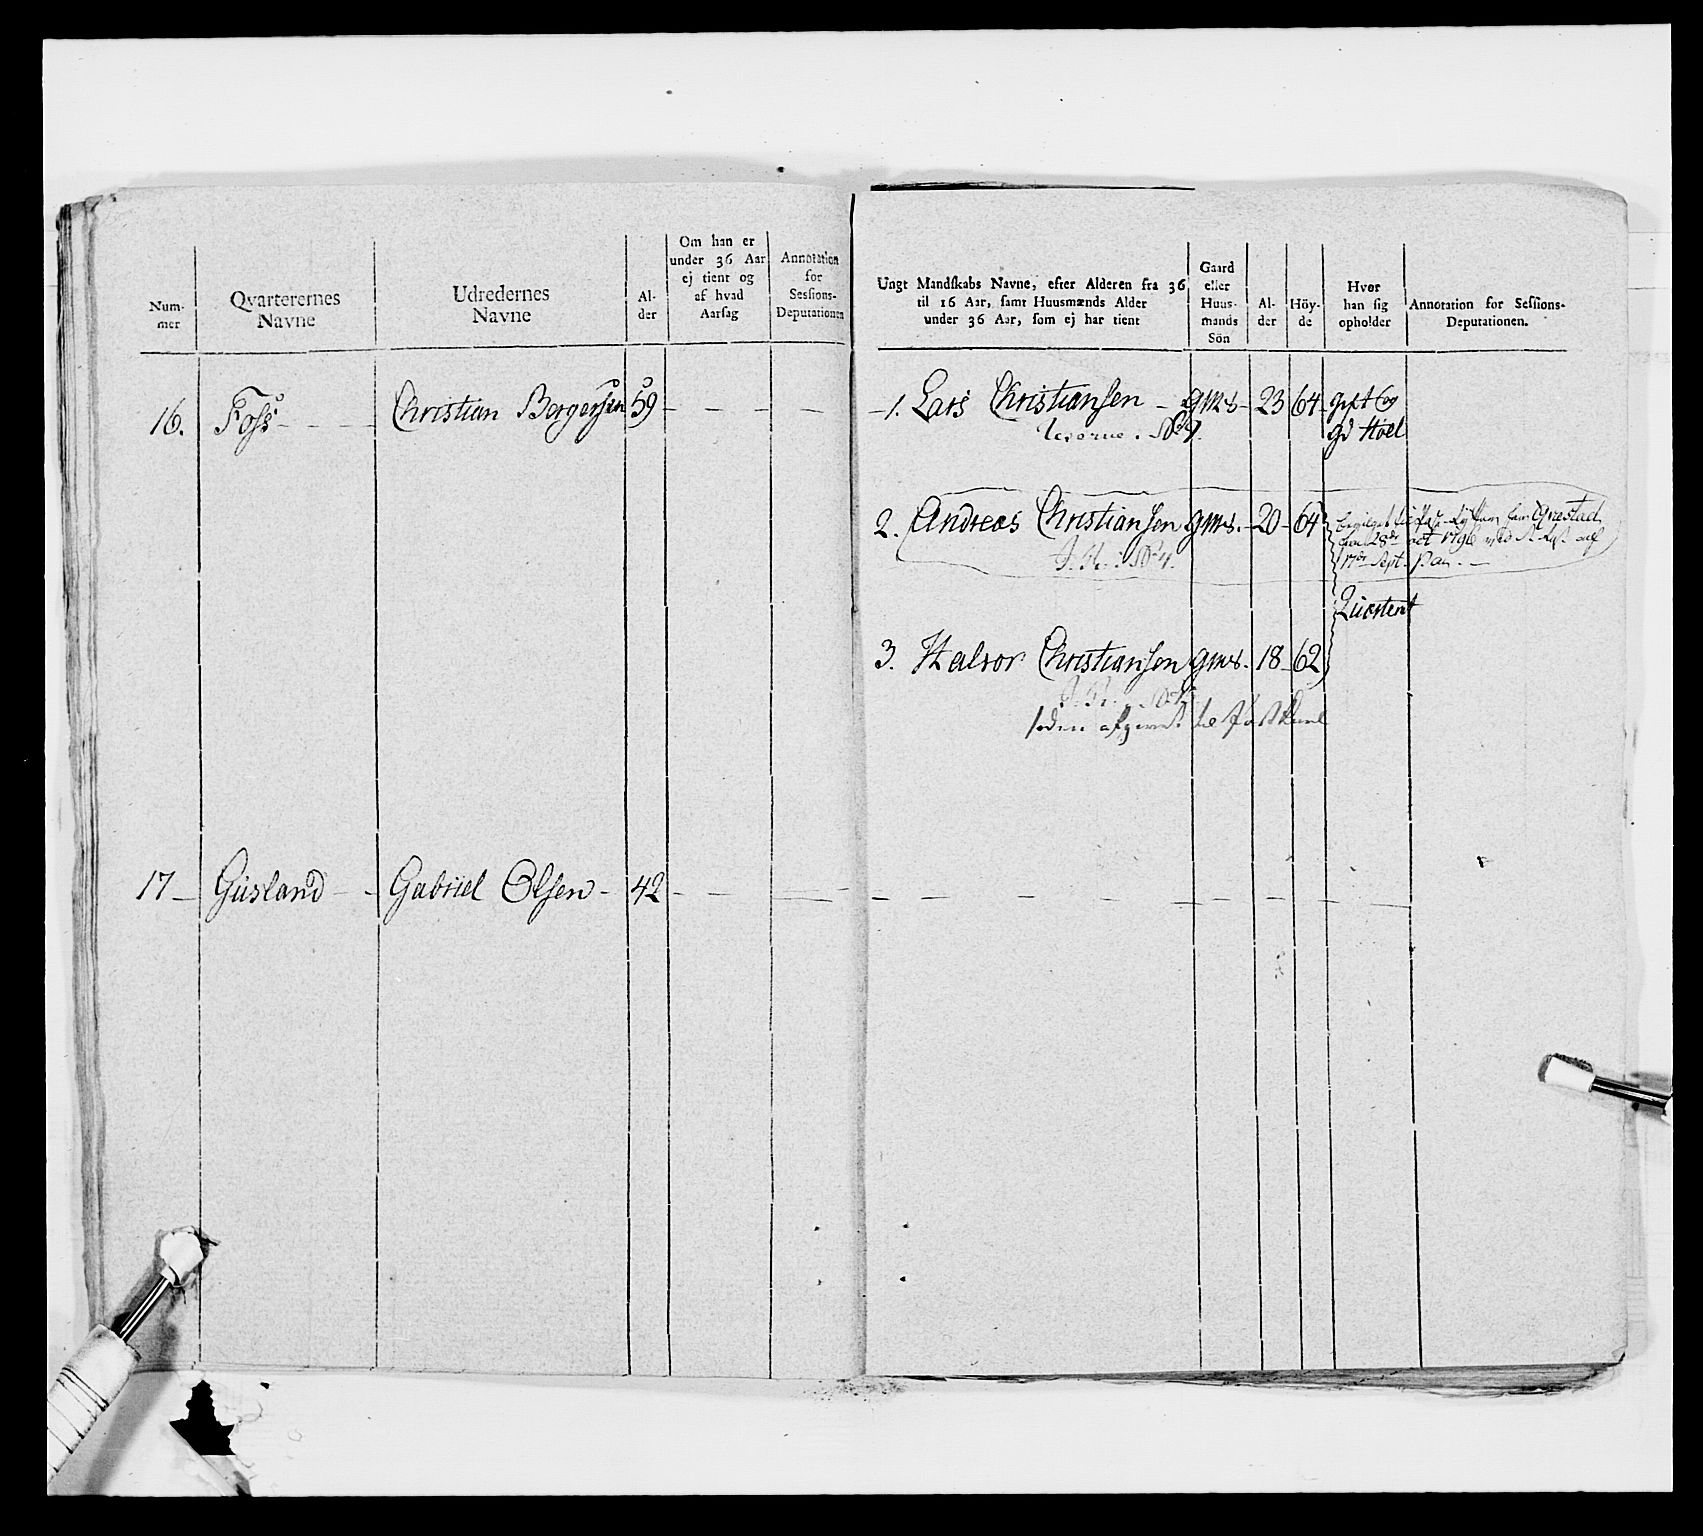 Num-
mer
Qvarterernes
Navne
Udredernes
Navne
Al-
der
Om han er
under 36 Aar
ej tient og
af hvad
Aarsag
Annotation
for
Sessions-
Deputationen
Ungt Mandskabs Navne, efter Alderen fra 36
til 16 Aar, samt Huusmænds Alder
under 36 Aar, som ej har tient
Gaard
eller
Huus-
mands
Sön
Al-
der
Höy-
de
Hvor
han sig
opholder
Annotation for Sessions-
Deputationen.
16. Foss Christian Bergersen 59
1. Lars Christiansen gms 23 64 gift og
gd Hoel
2. Andreas Christiansen gms. 20 64
28de oct 1796
17de Sept.
3. Halvor Christiansen gms. 18 62
17 Gusland Gabriel Olsen 42